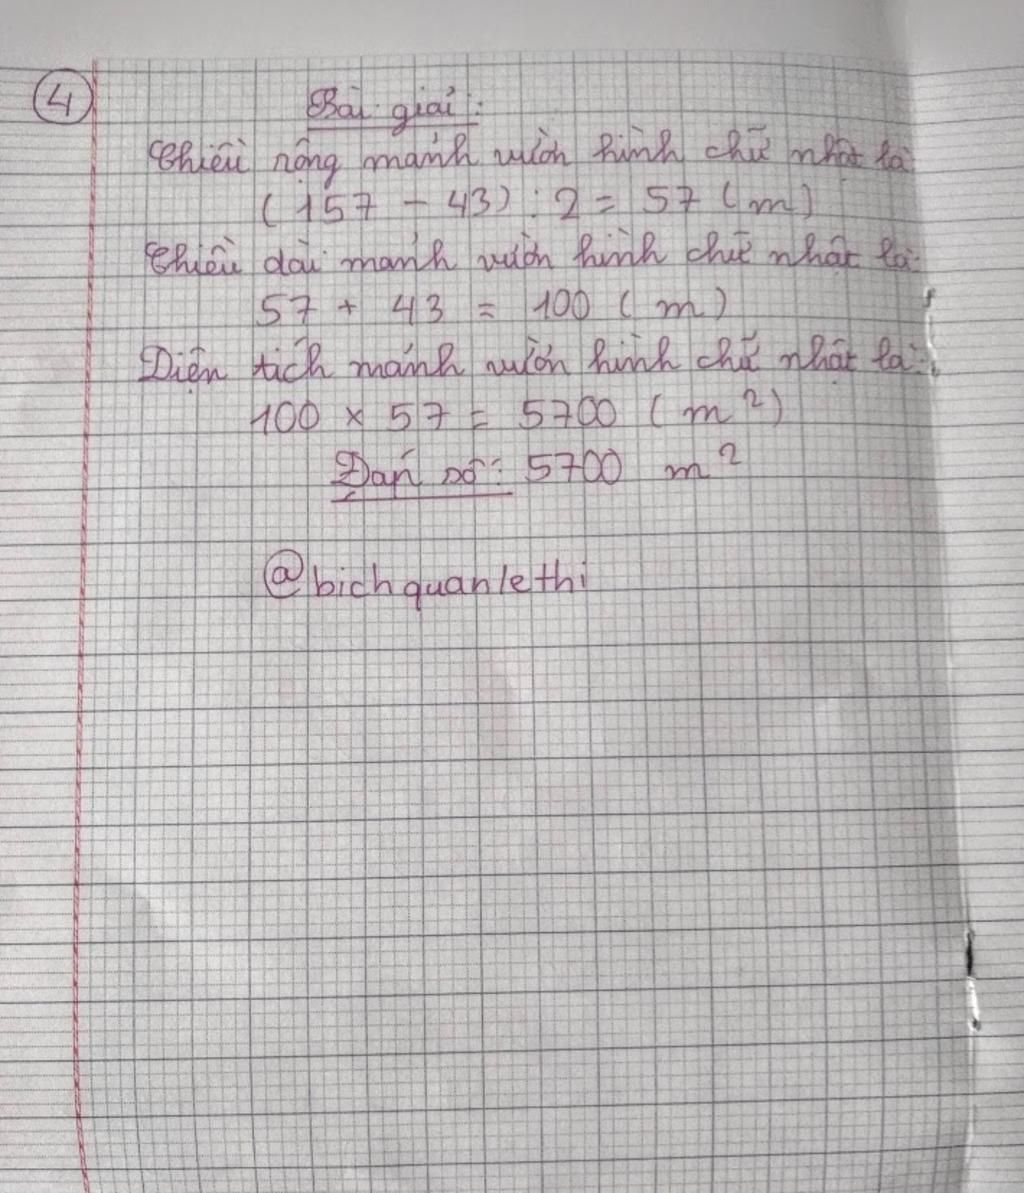 4
Bài giải:
Chiều rộng mảnh vườn hình chữ nhật là:
(157 - 43) : 2 = 57 (m)
Chiều dài mảnh vườn hình chữ nhật là:
57 + 43 = 100 (m)
Diện tích mảnh vườn hình chữ nhật là:
100 x 57 = 5700 (m²)
Đáp số: 5700 m²
@bichquanlethi